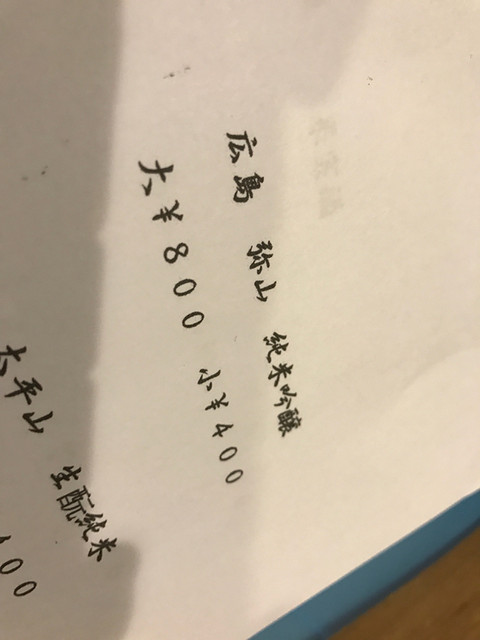 広島 弥山 純米吟醸
大¥800 小¥400
太平山 生酛純米